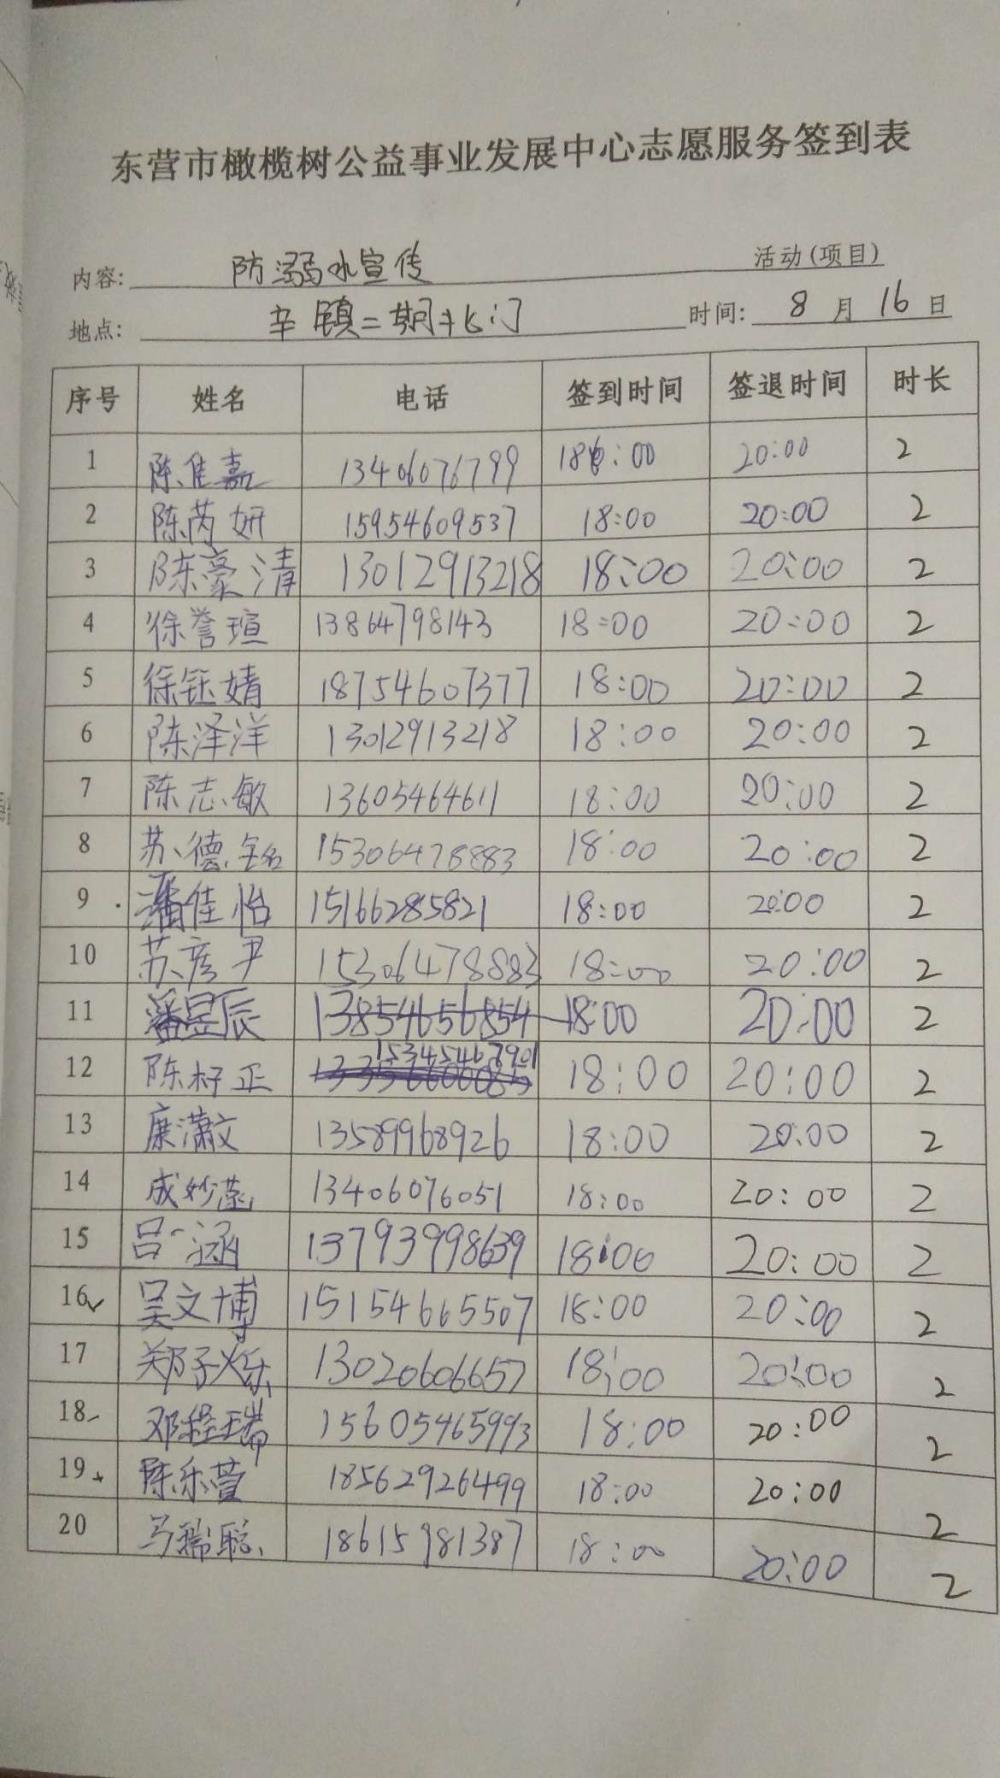 东营市橄榄树公益事业发展中心志愿服务签到表
内容: 防溺水宣传 活动(项目)
地点: 辛镇二期北门 时间: 8 月 16 日
序号 姓名 电话 签到时间 签退时间 时长
1 陈佳嘉 13406076799 18:00 20:00 2
2 陈芮妍 15954609537 18:00 20:00 2
3 陈豪清 13012913218 18:00 20:00 2
4 徐誉瑄 13864798143 18:00 20:00 2
5 徐钰婧 18754607377 18:00 20:00 2
6 陈泽洋 13012913218 18:00 20:00 2
7 陈志敏 13605464611 18:00 20:00 2
8 苏德铭 15306478883 18:00 20:00 2
9 潘佳怡 15166285821 18:00 20:00 2
10 苏彦尹 15306478883 18:00 20:00 2
11 潘昱辰 13854656854 18:00 20:00 2
12 陈籽正 15345467901 18:00 20:00 2
13 康潇文 13589968926 18:00 20:00 2
14 成妙蕊 13406076051 18:00 20:00 2
15 吕一涵 13793998639 18:00 20:00 2
16 吴文博 15154665507 18:00 20:00 2
17 郑子烁 13020606657 18:00 20:00 2
18 邓程瑞 15605465993 18:00 20:00 2
19 陈乐萱 18562926499 18:00 20:00 2
20 马瑞聪 18615981387 18:00 20:00 2